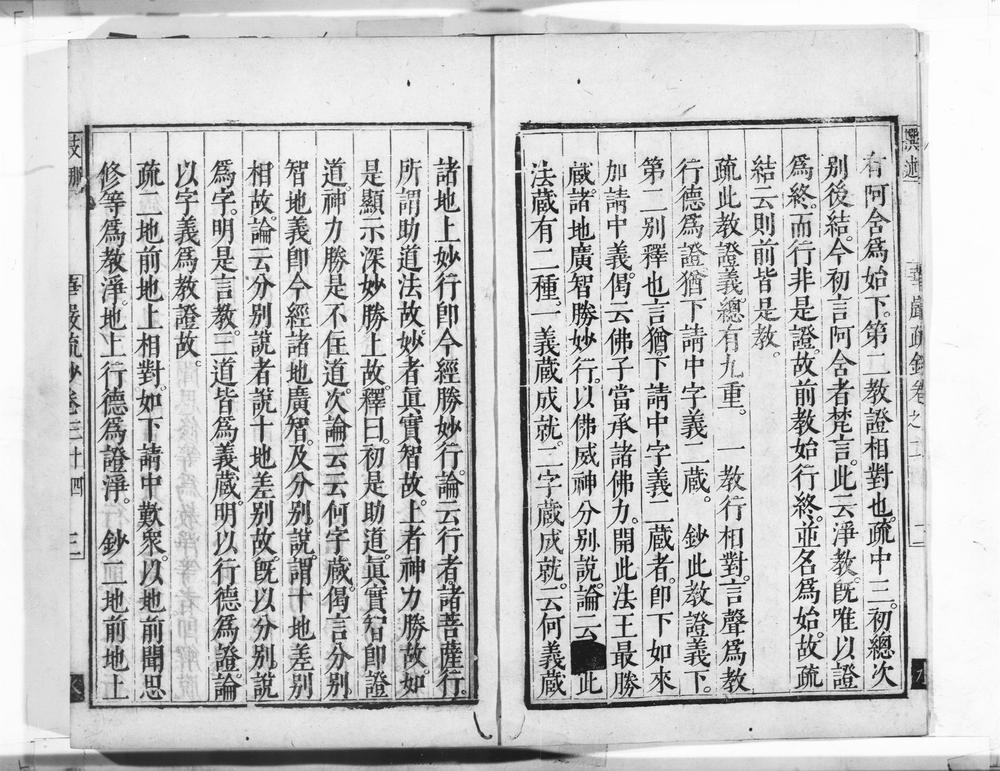 撰述
華嚴疏鈔卷之
有阿含爲始下第二教證相對也疏中三初總次
别後結今初言阿含者梵言此云淨教旣唯以證
爲終而行非是證故前教始行終並名爲始故疏
結云則前皆是教
疏此教證義總有九重 一教行相對言聲爲教
行德爲證猶下請中字義二藏 鈔此教證義下
第二別釋也言猶下請中字義二藏者卽下如來
加請中義偈云佛子當承諸佛力開此法王最勝
藏諸地廣智勝妙行以佛威神分别說論云 此
法藏有二種一義藏成就二字藏成就云何義藏
諸地上妙行卽今經勝妙行論云行者諸菩薩行
所謂助道法故妙者眞實智故上者神力勝故如
是顯示深妙勝上故釋曰初是助道眞實智卽證
道神力勝是不住道次論云云何字藏偈言分别
智地義卽今經諸地廣智及分别說謂十地差别
相故論云分别說者說十地差别故旣以分别說
爲字明是言教三道皆爲義藏明以行德爲證論
以字義爲教證故
疏二地前地上相對如下請中歎衆以地前聞思
修等爲教淨地上行德爲證淨 鈔二地前地上
支那
華嚴疏鈔卷三十四 三